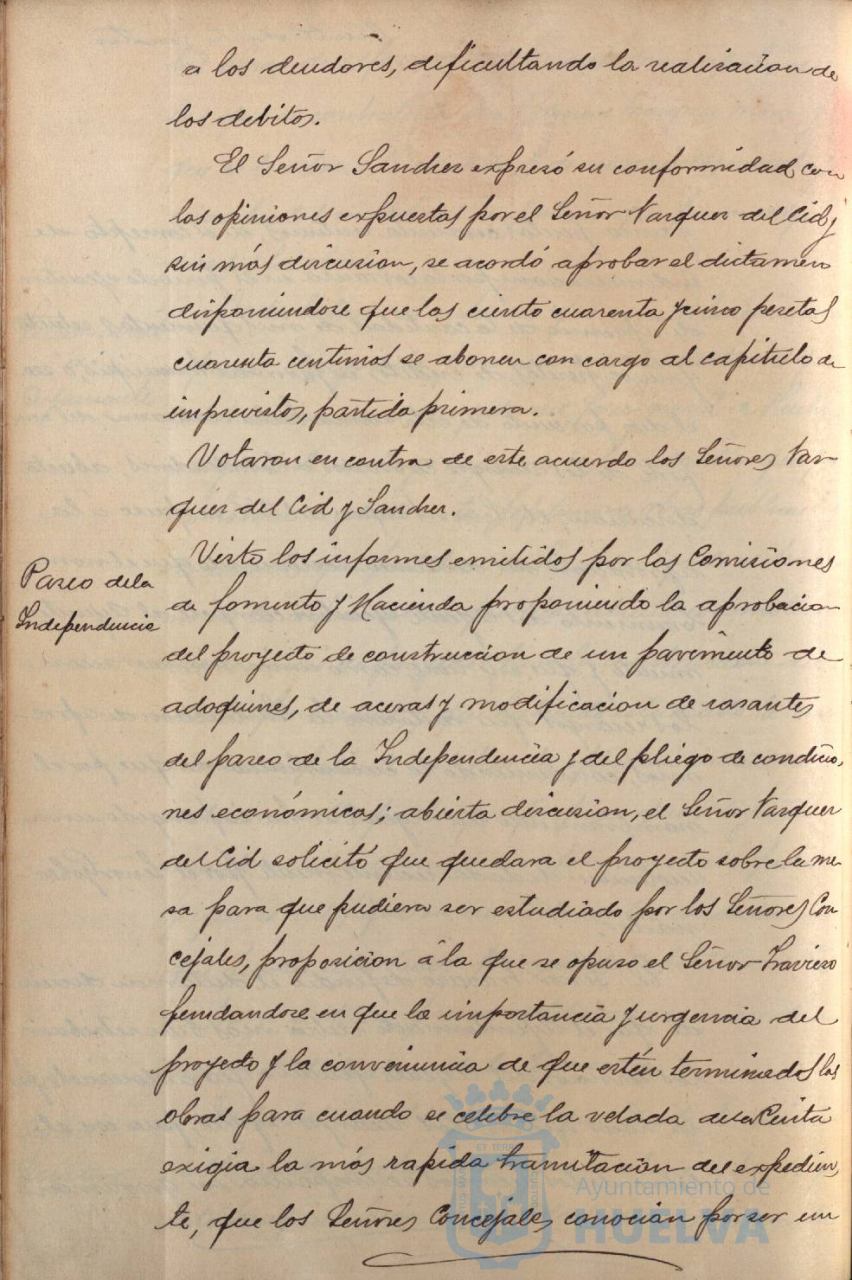 a los deudores, dificultando la realizacion de
los debitos.
El Señor Sanchez expresó su conformidad con
las opiniones expuestas por el Señor Vazquez del Cid y
sin más discusion, se acordó aprobar el dictamen
disponiendose que las ciento cuarenta y cinco pesetas
cuarenta centimos se abonen con cargo al capitulo de
imprevistos, partida primera.
Votaron en contra de este acuerdo los Señores Vaz-
quez del Cid y Sanchez.
Paseo de la
Independencia
Visto los informes emitidos por las Comisiones
de fomento y Hacienda proponiendo la aprobacion
del proyecto de construccion de un pavimento de
adoquines, de aceras y modificacion de rasantes
del paseo de la Independencia y del pliego de condicio-
nes económicas; abierta discusion, el Señor Vazquez
del Cid solicitó que quedara el proyecto sobre la me-
sa para que pudiera ser estudiado por los Señores Con-
cejales, proposicion á la que se opuso el Señor Travieso
fundandose en que la importancia y urgencia del
proyecto y la conveniencia de que estén terminados las
obras para cuando se celebre la velada de la Cinta
exigia la más rapida tramitacion del expedien-
te, que los Señores Concejales conocian por ser un
Ayuntamiento de
HUELVA